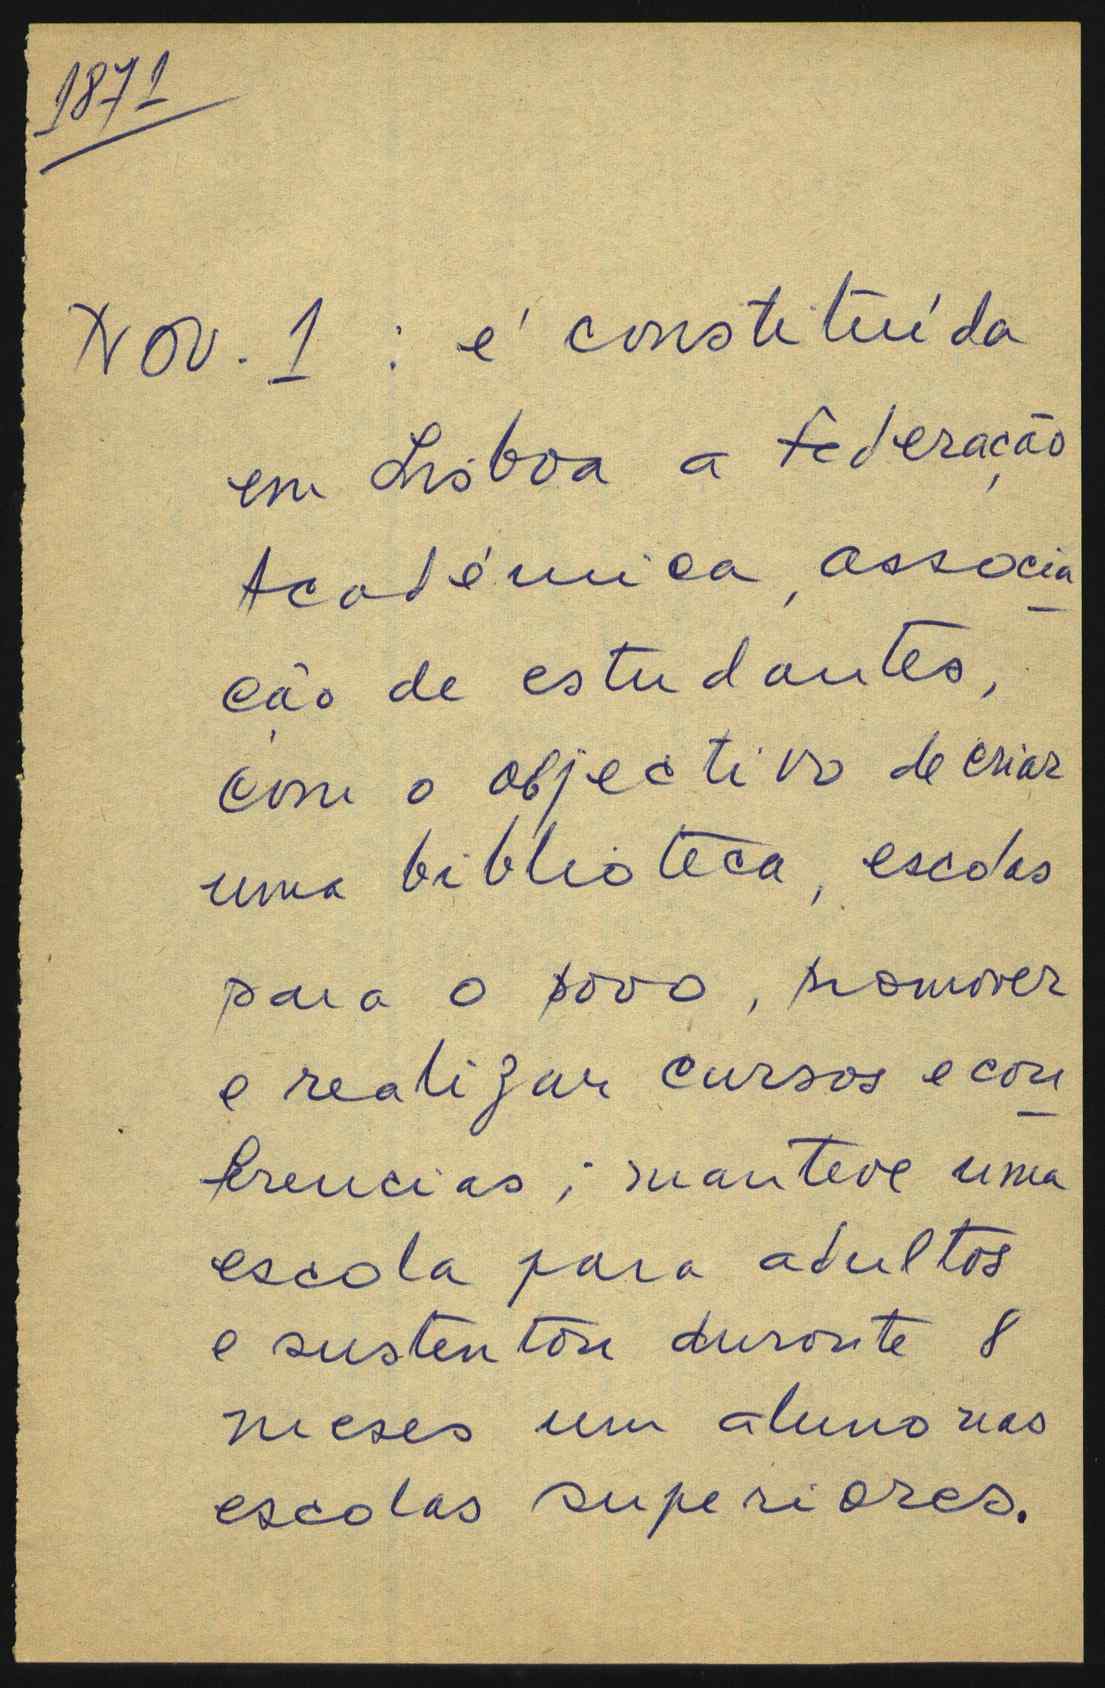 1871
Nov. 1 : é constituída
em Lisboa a Federação
Académica, associa
ção de estudantes,
com o objectivo de criar
uma biblioteca, escolas
para o povo, promover
e realizar cursos e con
ferencias; manteve uma
escola para adultos
e sustentou durante 8
meses um aluno nas
escolas superiores.